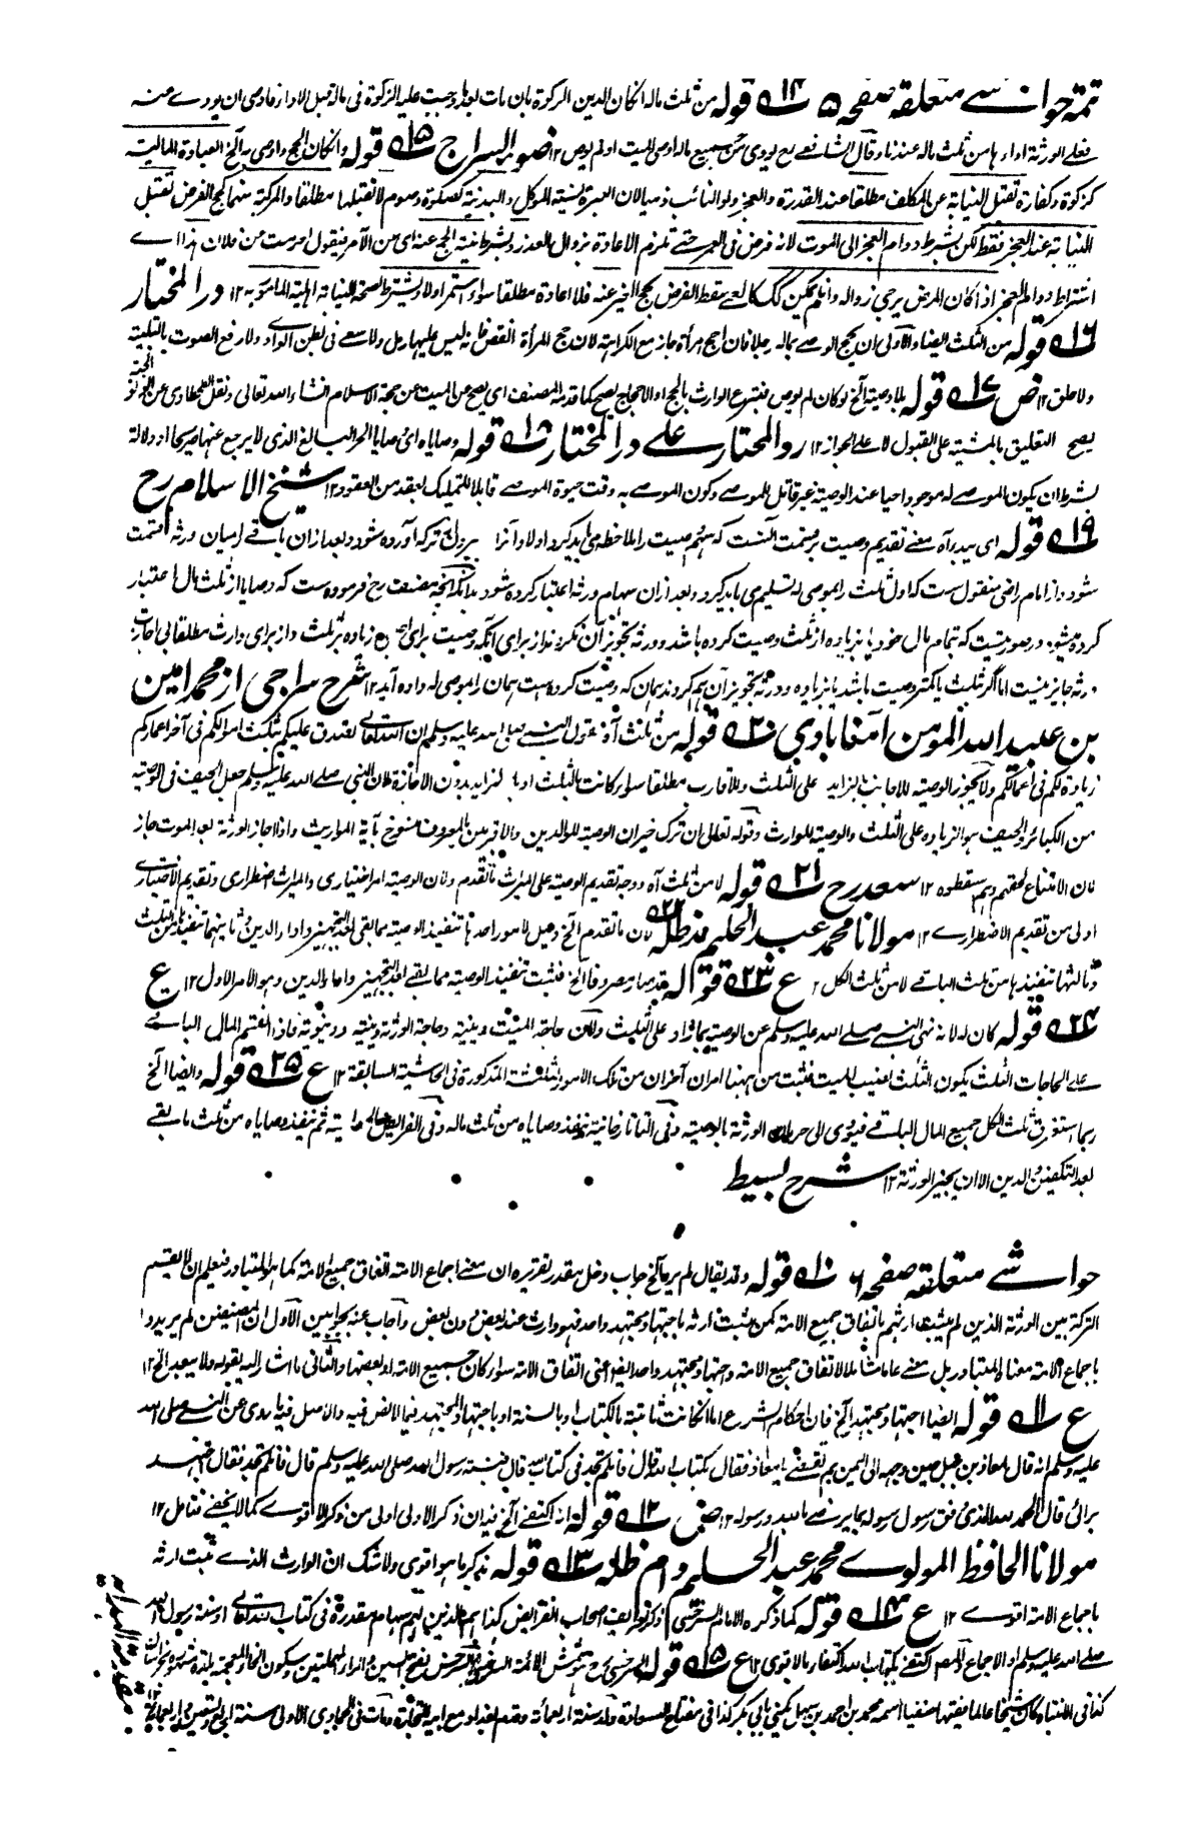 تتمه حواشي متعلقه صفحه ۵ ۱۴ قوله من ثلث ماله ان كان الدين الزكوة بان مات بعد ما وجبت عليه الزكوة في ماله قبل الاداء فاوصى ان يودى منه
فعلى الورثة اداءها من ثلث ماله عندنا وقال الشافعي يودى من جميع ماله اوصى الميت او لم يوص ۱۲ ضوء السراج ۱۵ قوله وان كان الحج واوصى به الخ العبادة المالية
كزكوة وكفارة تقبل النيابة عن المكلف مطلقا عند القدرة والعجز ولو النائب ذميا لان العبرة لنية الموكل والبدنية كصلوة وصوم لا تقبلها مطلقا والمركبة منهما كحج الفرض تقبل
النيابة عند العجز فقط لكن بشرط دوام العجز الى الموت لانه فرض العمر حتى تلزم الاعادة بزوال العذر وبشرط نية الحج عنه اى عن الآمر فيقول احرمت عن فلان هذا اى
اشتراط دوام العجز اذا كان المرض يرجى زواله وان لم يكن كذلك كالعمى سقط الفرض بحج الغير عنه فلا اعادة مطلقا سواء استمر اولا ويشترط لصحة النيابة اهلية المامور به ۱۲ در المختار
۱۶ قوله من الثلث ايضا والاولى ان يحج الوصي بماله رجلا فان احج امرأة جاز مع الكراهة لان حج المرأة انقص فانه ليس عليها رمل ولا سعى في بطن الوادى ولا رفع الصوت بالتلبية
ولا حلق ۱۲ ض ۱۷ قوله بلا وصية الخ لو كان لم يوص فتبرع الوارث بالحج او الاحجاج يصح كما قدمه المصنف اى يصح عن الميت عن حجة الاسلام انشاء الله تعالى ونقل الطحطاوى عن
يصح التعليق بالمشية على القبول لا على الجواز ۱۲ رد المحتار على در المختار ۱۸ قوله وصاياه اى وصايا الحر البالغ الذى لا يرجع عنها صريحا او دلالة
بشرط ان يكون الموصى له موجودا حيا عند الوصية غير قاتل للموصى وكون الموصى به وقت حيوة الموصى قابلا للتمليك بعقد من العقود ۱۲ شيخ الاسلام رح
۱۹ قوله اى يبدأ آه معنى تقديم وصيت بر قسمت آنست كه سهم وصيت را ملاحظه مى بايد كرد اولا و آنرا بيرون از تركه آورده شود و بعد ازان باقى را ميان ورثه قسمت
شود و از امام راضى منقول ست كه اول ثلث را بموصى له تسليم مى بايد كرد و بعد ازان سهام ورثه اعتبار كرده شود بدانكه آنچه مصنف رح فرموده ست كه وصايا از ثلث مال اعتبار
كرده ميشود در صورتيست كه بتمام مال خود يا بزياده از ثلث وصيت كرده باشد و ورثه تجويز آن نكرد زيرا كه وصيت براى اجنبى زياده بر ثلث و از براى وارث مطلقا بى اجازت
ورثه جايز نيست اما اگر ثلث يا كمتر وصيت باشد يا بزياده و ورثه تجويز آن هم كردند همان كه وصيت كرده است همان را بموصى له داده آيد ۱۲ شرح سراجى از محمد امين
بن عبيد الله المومن آبادى ۲۰ قوله من ثلث آه لقول النبي صلى الله عليه وسلم ان الله تعالى تصدق عليكم بثلث اموالكم في آخر اعماركم
زيادة لكم في اعمالكم ولا يجوز الوصية للاجانب بالزايد على الثلث وللاقارب مطلقا سواء كانت بالثلث او بالزايد بدون الاجازة لان النبي صلى الله عليه وسلم جعل الحيف في الوصية
من الكبائر والحيف هو الزياده على الثلث والوصية للوارث وقوله تعالى ان ترك خيران الوصية للوالدين والاقربين بالمعروف منسوخ بآية المواريث واذا اجاز الورثة بعد الموت جاز
لان الامتناع لحقهم وهم سقطوه ۱۲ سعد رح ۲۱ قوله لا من ثلث آه ووجه تقديم الوصية على الميراث ما تقدم ولان الوصية امر اختيارى والميراث اضطرارى وتقديم الاختيارى
اولى من تقديم الاضطرارى ۱۲ مولانا محمد عبد الحليم مد ظله ۲۲ لان ما تقدم الخ وحيل الامور احدها تنفيذ الوصية مما بقى بعد التجهيز واداء الدين وثانيها تنفيذها من الثلث
وثالثها تنفيذها من ثلث الباقي لا من ثلث الكل ۱۲ ع ۲۳ قوله قد صار مصروفا الخ فثبت تنفيذ الوصية مما بقى بعد التجهيز واداء الدين وهو الامر الاول ۱۲ ع
۲۴ قوله كان له لانه نهى النبي صلى الله عليه وسلم عن الوصية بما زاد على الثلث ولان حاجة الميت دينية وحاجة الورثة دينية ودنيوية فاذا انقسم المال الباقي
على الحاجات الثلث يكون الثلث نصيب الميت فثبت من ههنا امران آخران من تلك الامور الثلثة المذكورة في الحاشية السابقة ۱۲ ع ۲۵ قوله وايضا الخ
ربما استغرق ثلث الكل جميع المال الباقي فيؤدى الى حرمان الورثة بالوصية وفي التاتارخانية تنفذ وصاياه من ثلث ماله وفي الفرائض ثم تنفيذ وصاياه من ثلث ما بقى
بعد التكفين والدين الا ان يجيز الورثة ۱۲ شرح بسيط
حواشي متعلقه صفحه ۶ ۱۰ قوله وقد يقال لم يرد الخ جواب دخل مقدر تقريره ان معنى اجماع الامة اتفاق جميع الامة كما هو المتبادر فيعلم ان لا يقسم
التركة بين الورثة الذين لم يثبت ارثهم باتفاق جميع الامة كمن يثبت ارثه باجتهاد مجتهد واحد فهو وارث عند بعض دون بعض واجاب عنه بجوابين الاول ان المصنفين لم يريدوا
باجماع الامة معناه المتبادر بل معنى عاما شاملا لاتفاق جميع الامة واجتهاد مجتهد واحد ايضا اعنى اتفاق الامة سواء كان جميع الامة او بعضها والثانى ما اشار اليه بقوله ولا يبعد الخ ۱۲
ع ۱۱ قوله ايضا اجتهاد مجتهد الخ فان احكام الشرع اما ان كانت ثابتة بالكتاب او بالسنة او باجتهاد المجتهد فيما لا نص فيه والاصل فيه ما روى عن النبي صلى الله
عليه وسلم انه قال لمعاذ بن جبل حين وجهه الى اليمن بم تقضى يا معاذ فقال بكتاب الله قال فان لم تجد في كتاب الله قال فبسنة رسول الله صلى الله عليه وسلم قال فان لم تجد فقال اجتهد
برائى قال الحمد لله الذى وفق رسول رسوله بما يرضى به الله ورسوله ۱۲ ض ۱۲ قوله انه اكتفى الخ فيه ان ذكر الاولى اولى من ذكر الاقوى كما لا يخفى فتامل ۱۲
مولانا الحافظ المولوى محمد عبد الحليم دام ظله ۱۳ قوله بذكر ما هو اقوى ولا شك ان الوارث الذى ثبت ارثه
باجماع الامة اقوى ۱۲ ع ۱۴ قوله كما ذكره الامام السرخسى اذ ذكر في تعريف اصحاب الفرائض كذا هم الذين لهم سهام مقدرة في كتاب الله تعالى او سنة رسول الله
صلى الله عليه وسلم او الاجماع والمصنف اكتفى بكتاب الله اكتفاء بالاقوى ۱۲ ع ۱۵ قوله السرخسى رح هو شمس الائمة السرخسى والسرخس بفتح السين والراء المهملتين وسكون الخاء المعجمة بلدة مشهورة بخراسان
كذا في الانساب وكان شيخا عالما فقيها حنفيا اسمه محمد بن احمد بن سهل يكنى بابى بكر كذا في مفتاح السعادة ولد سنة اربعمائة وقدم بغداد مع ابيه للتجارة ومات في الجمادى الاولى سنة اربع وتسعين واربعمائة